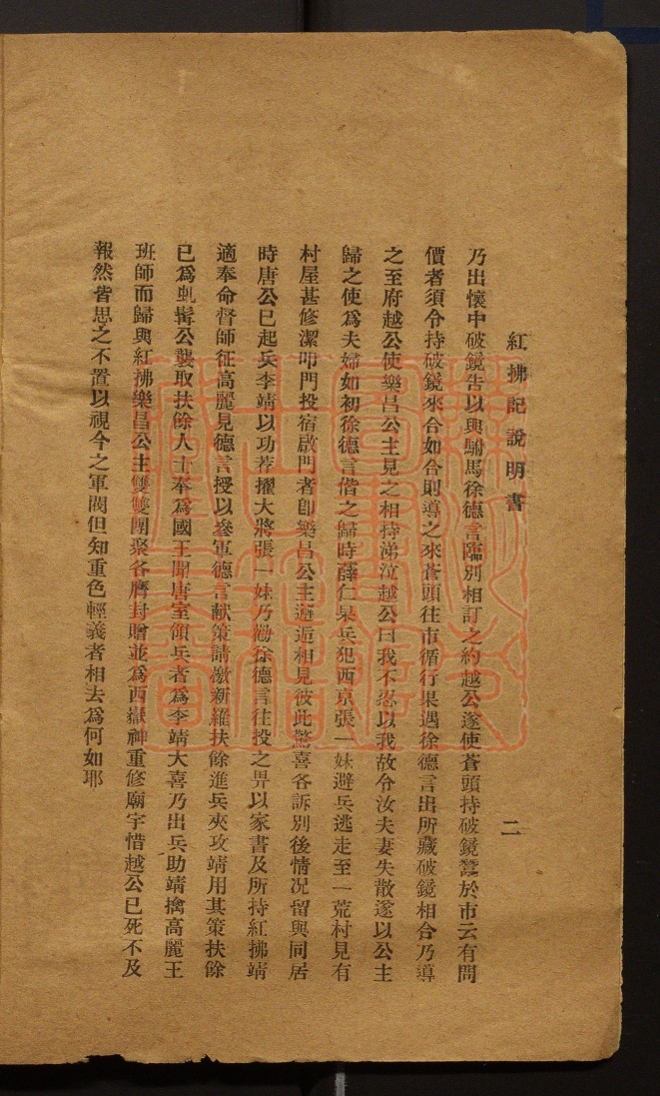 紅拂記說明書
二
乃出懷中破鏡告以與駙馬徐德言臨別相訂之約越公遂使蒼頭持破鏡鬻於市云有問
價者須令持破鏡來合如合則導之來蒼頭往市循行果遇徐德言出所藏破鏡相合乃導
之至府越公使樂昌公主見之相持涕泣越公曰我不忍以我故令汝夫妻失散遂以公主
歸之使爲夫婦如初徐德言偕之歸時薛仁杲兵犯西京張一妹避兵逃走至一荒村見有
村屋甚修潔叩門投宿啟門者卽樂昌公主邂逅相見彼此驚喜各訴別後情况留與同居
時唐公已起兵李靖以功荐擢大將張一妹乃勸徐德言往投之畀以家書及所持紅拂靖
適奉命督師征高麗見德言授以叅軍德言献策請激新羅扶餘進兵夾攻靖用其策扶餘
已爲虬髯公襲取扶餘人士奉爲國王聞唐室領兵者爲李靖大喜乃出兵助靖擒高麗王
班師而歸與紅拂樂昌公主雙雙團聚各膺封贈並爲西嶽神重修廟宇惜越公已死不及
報然皆思之不置以視今之軍閥但知重色輕義者相去爲何如耶